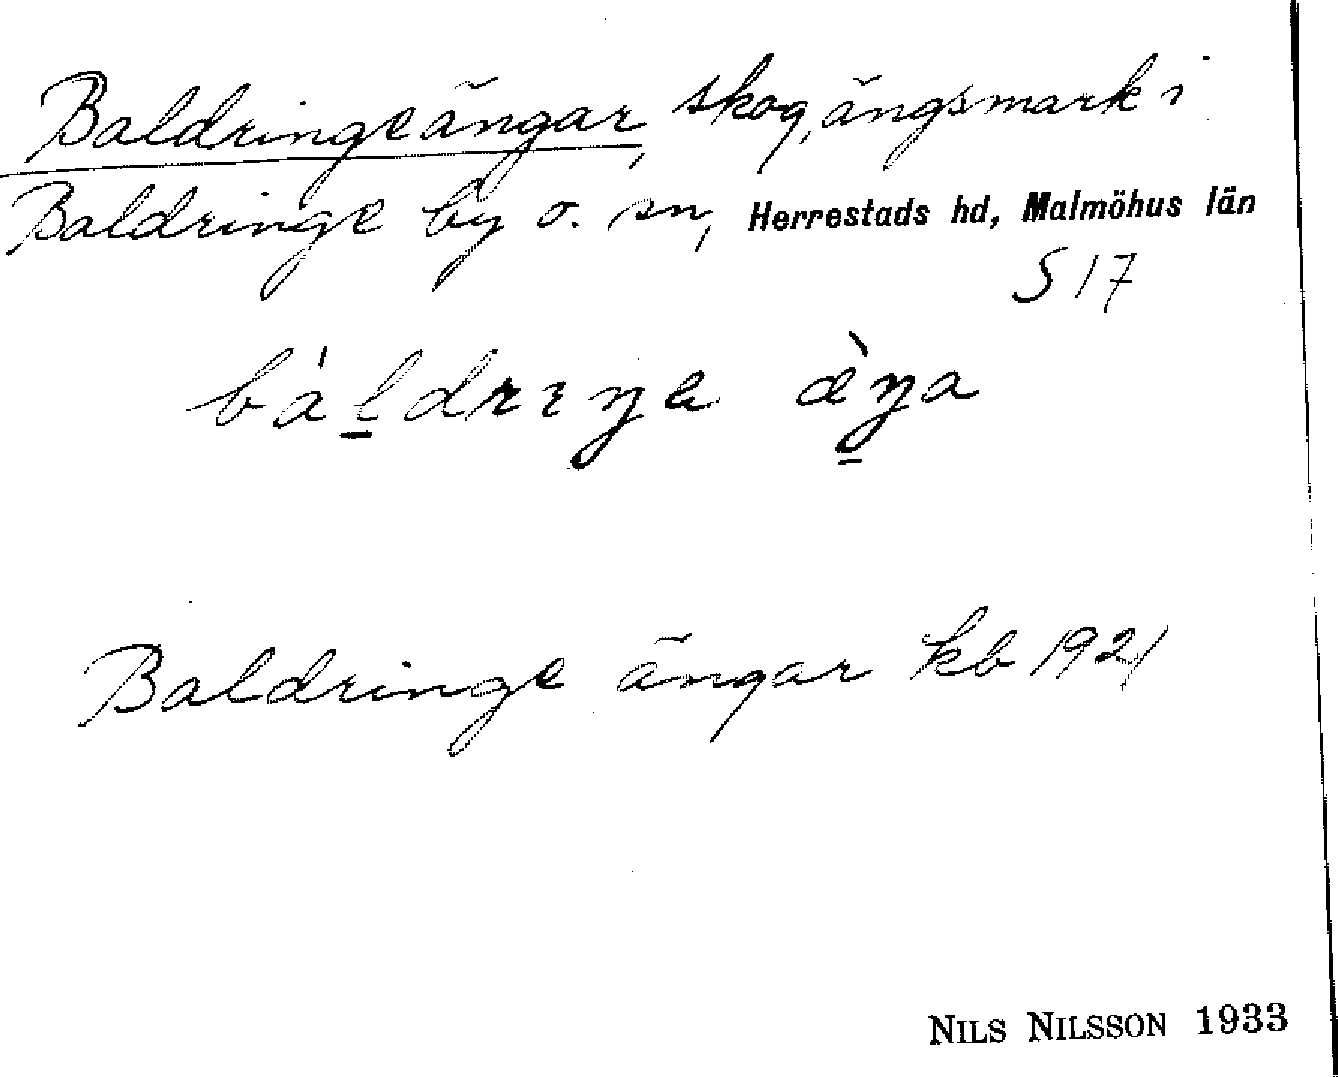 Baldringeängar, skog, ängsmark i
Baldringe by o. sn, Herrestads hd, Malmöhus län
S 17
báldrıŋa æ̀ŋa
Baldringe ängar kb 1921
NILS NILSSON 1933